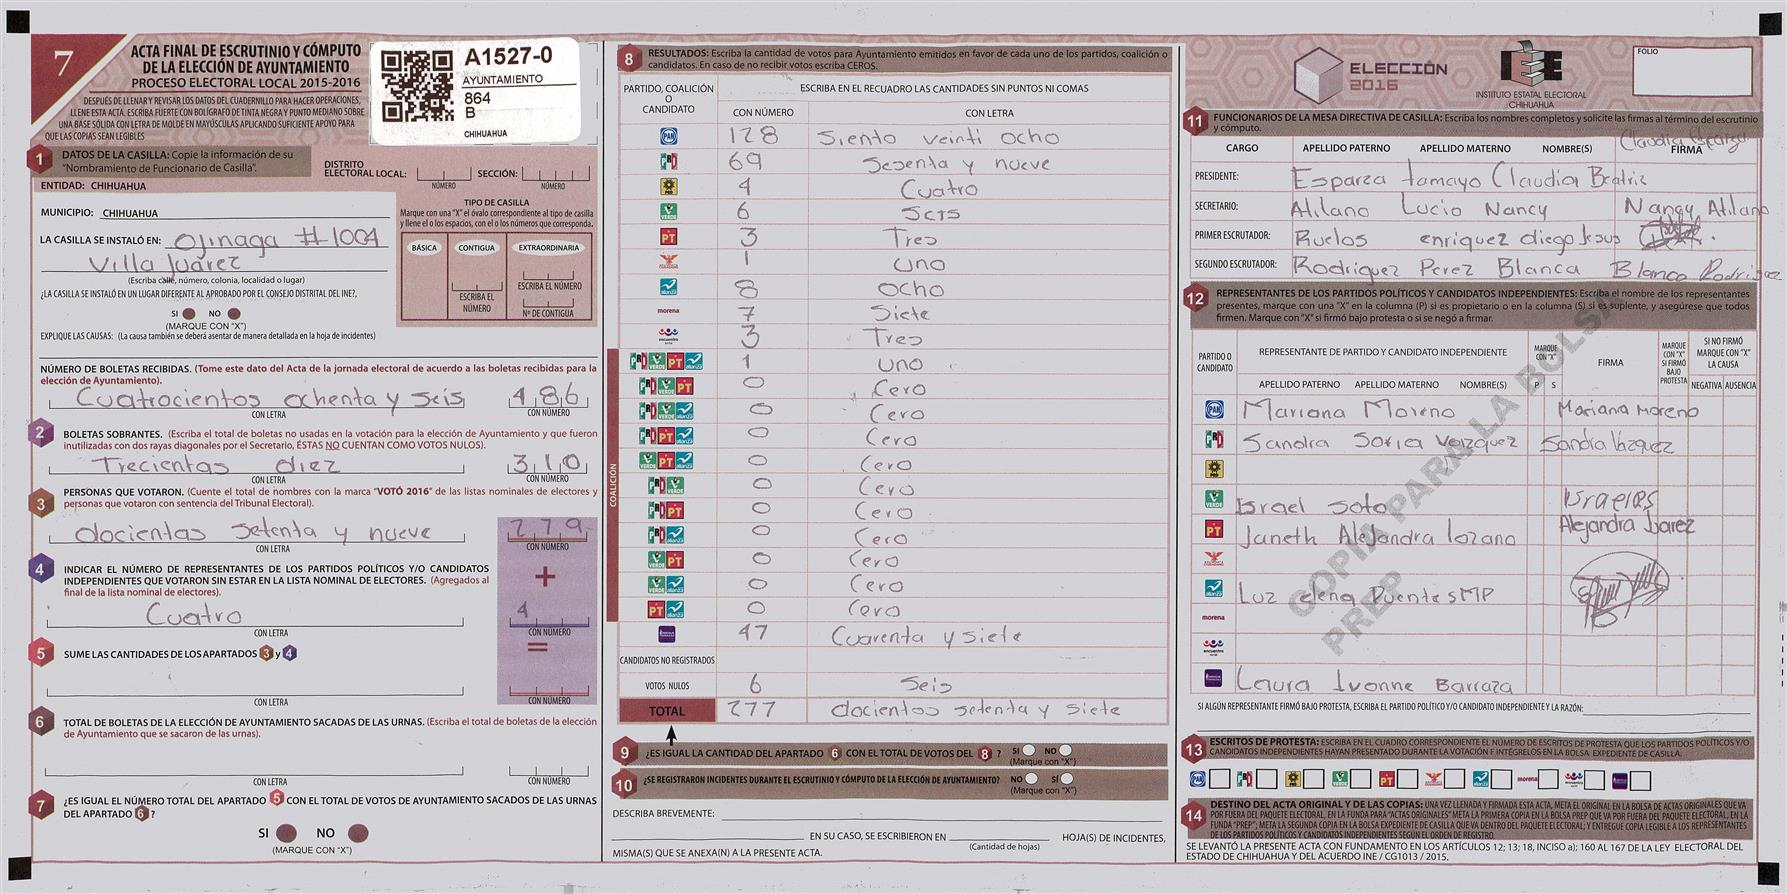 7
ACTA FINAL DE ESCRUTINIO Y CÓMPUTO
DE LA ELECCIÓN DE AYUNTAMIENTO
PROCESO ELECTORAL LOCAL 2015-2016
DESPUÉS DE LLENAR Y REVISAR LOS DATOS DEL CUADERNILLO PARA HACER OPERACIONES,
LLENE ESTA ACTA. ESCRIBA FUERTE CON BOLÍGRAFO DE TINTA NEGRA Y PUNTO MEDIANO SOBRE
UNA BASE SÓLIDA CON LETRA DE MOLDE EN MAYÚSCULAS APLICANDO SUFICIENTE APOYO PARA
QUE LAS COPIAS SEAN LEGIBLES
A1527-0
AYUNTAMIENTO
864
B
CHIHUAHUA
1 DATOS DE LA CASILLA: Copie la información de su
"Nombramiento de Funcionario de Casilla".
DISTRITO
ELECTORAL LOCAL:
NÚMERO
SECCIÓN:
NÚMERO
ENTIDAD: CHIHUAHUA
MUNICIPIO: CHIHUAHUA
LA CASILLA SE INSTALÓ EN: Ojinaga #1004
Villa Juárez
(Escriba calle, número, colonia, localidad o lugar)
¿LA CASILLA SE INSTALÓ EN UN LUGAR DIFERENTE AL APROBADO POR EL CONSEJO DISTRITAL DEL INE?,
SI NO
(MARQUE CON "X")
EXPLIQUE LAS CAUSAS: (La causa también se deberá asentar de manera detallada en la hoja de incidentes)
TIPO DE CASILLA
Marque con una "X" el óvalo correspondiente al tipo de casilla
y llene el o los espacios, con el o los números que corresponda.
BÁSICA CONTIGUA EXTRAORDINARIA
ESCRIBA EL
NÚMERO
ESCRIBA EL NÚMERO
Nº DE CONTIGUA
NÚMERO DE BOLETAS RECIBIDAS. (Tome este dato del Acta de la jornada electoral de acuerdo a las boletas recibidas para la
elección de Ayuntamiento).
Cuatrocientos ochenta y seis 486
CON LETRA CON NÚMERO
2 BOLETAS SOBRANTES. (Escriba el total de boletas no usadas en la votación para la elección de Ayuntamiento y que fueron
inutilizadas con dos rayas diagonales por el Secretario, ÉSTAS NO CUENTAN COMO VOTOS NULOS).
Trecientas diez 310
CON LETRA CON NÚMERO
3 PERSONAS QUE VOTARON. (Cuente el total de nombres con la marca "VOTÓ 2016" de las listas nominales de electores y
personas que votaron con sentencia del Tribunal Electoral).
docientas setenta y nueve 279
CON LETRA CON NÚMERO
4 INDICAR EL NÚMERO DE REPRESENTANTES DE LOS PARTIDOS POLÍTICOS Y/O CANDIDATOS
INDEPENDIENTES QUE VOTARON SIN ESTAR EN LA LISTA NOMINAL DE ELECTORES. (Agregados al
final de la lista nominal de electores).
+
Cuatro 4
CON LETRA CON NÚMERO
=
5 SUME LAS CANTIDADES DE LOS APARTADOS 3 y 4
CON LETRA CON NÚMERO
6 TOTAL DE BOLETAS DE LA ELECCIÓN DE AYUNTAMIENTO SACADAS DE LAS URNAS. (Escriba el total de boletas de la elección
de Ayuntamiento que se sacaron de las urnas).
CON LETRA CON NÚMERO
7 ¿ES IGUAL EL NÚMERO TOTAL DEL APARTADO 5 CON EL TOTAL DE VOTOS DE AYUNTAMIENTO SACADOS DE LAS URNAS
DEL APARTADO 6?
SI NO
(MARQUE CON "X")
8 RESULTADOS: Escriba la cantidad de votos para Ayuntamiento emitidos en favor de cada uno de los partidos, coalición o
candidatos. En caso de no recibir votos escriba CEROS.
PARTIDO, COALICIÓN
O
CANDIDATO
ESCRIBA EN EL RECUADRO LAS CANTIDADES SIN PUNTOS NI COMAS
CON NÚMERO CON LETRA
PAN 128 Siento veinti ocho
PRI 69 Sesenta y nueve
PRD 4 Cuatro
VERDE 6 Seis
PT 3 Tres
1 uno
alianza 8 ocho
morena 7 Siete
encuentro social 3 Tres
COALICIÓN
PRI VERDE PT alianza 1 uno
PRI VERDE PT 0 Cero
PRI VERDE alianza 0 Cero
PRI PT alianza 0 Cero
VERDE PT alianza 0 Cero
PRI VERDE 0 Cero
PRI PT 0 Cero
PRI alianza 0 Cero
VERDE PT 0 Cero
VERDE alianza 0 Cero
PT alianza 0 Cero
47 Cuarenta y siete
CANDIDATOS NO REGISTRADOS
VOTOS NULOS 6 Seis
TOTAL 277 docientos setenta y siete
9 ¿ES IGUAL LA CANTIDAD DEL APARTADO 6 CON EL TOTAL DE VOTOS DEL 8? SI NO
(Marque con "X")
10 ¿SE REGISTRARON INCIDENTES DURANTE EL ESCRUTINIO Y CÓMPUTO DE LA ELECCIÓN DE AYUNTAMIENTO? NO SÍ
(Marque con "X")
DESCRIBA BREVEMENTE:
EN SU CASO, SE ESCRIBIERON EN HOJA(S) DE INCIDENTES,
(Cantidad de hojas)
MISMA(S) QUE SE ANEXA(N) A LA PRESENTE ACTA.
ELECCIÓN
2016
IEE
INSTITUTO ESTATAL ELECTORAL
CHIHUAHUA
FOLIO
11 FUNCIONARIOS DE LA MESA DIRECTIVA DE CASILLA: Escriba los nombres completos y solicite las firmas al término del escrutinio
y cómputo.
Claudia Esparza
CARGO APELLIDO PATERNO APELLIDO MATERNO NOMBRE(S) FIRMA
PRESIDENTE: Esparza tamayo Claudia Beatriz
SECRETARIO: Atilano Lucio Nancy Nancy Atilano
PRIMER ESCRUTADOR: Ruelos enriquez diego Jesus
SEGUNDO ESCRUTADOR: Rodriguez Perez Blanca Blanca Rodriguez
12 REPRESENTANTES DE LOS PARTIDOS POLÍTICOS Y CANDIDATOS INDEPENDIENTES: Escriba el nombre de los representantes
presentes, marque con una "X" en la columna (P) si es propietario o en la columna (S) si es suplente, y asegúrese que todos
firmen. Marque con "X" si firmó bajo protesta o si se negó a firmar.
PARTIDO O
CANDIDATO
REPRESENTANTE DE PARTIDO Y CANDIDATO INDEPENDIENTE
MARQUE
CON "X"
FIRMA
MARQUE
CON "X"
SI FIRMÓ
BAJO
PROTESTA
SI NO FIRMÓ
MARQUE CON "X"
LA CAUSA
APELLIDO PATERNO APELLIDO MATERNO NOMBRE(S) P S NEGATIVA AUSENCIA
PAN Mariana Moreno Mariana Moreno
PRI Sandra Soria Vazquez Sandra Vazquez
PRD
VERDE Israel Soto
PT Janeth Alejandra lozano Alejandra Juarez
alianza Luz elena Puentes MP
morena
encuentro social
Laura Ivonne Barraza
COPIA PARA LA BOLSA
PREP
SI ALGÚN REPRESENTANTE FIRMÓ BAJO PROTESTA, ESCRIBA EL PARTIDO POLÍTICO Y/O CANDIDATO INDEPENDIENTE Y LA RAZÓN:
13 ESCRITOS DE PROTESTA: ESCRIBA EN EL CUADRO CORRESPONDIENTE EL NÚMERO DE ESCRITOS DE PROTESTA QUE LOS PARTIDOS POLÍTICOS Y/O
CANDIDATOS INDEPENDIENTES HAYAN PRESENTADO DURANTE LA VOTACIÓN E INTÉGRELOS EN LA BOLSA EXPEDIENTE DE CASILLA.
14 DESTINO DEL ACTA ORIGINAL Y DE LAS COPIAS: UNA VEZ LLENADA Y FIRMADA ESTA ACTA, META EL ORIGINAL EN LA BOLSA DE ACTAS ORIGINALES QUE VA
POR FUERA DEL PAQUETE ELECTORAL, EN LA FUNDA PARA "ACTAS ORIGINALES" META LA PRIMERA COPIA EN LA BOLSA PREP QUE VA POR FUERA DEL PAQUETE ELECTORAL, EN LA
FUNDA "PREP"; META LA SEGUNDA COPIA EN LA BOLSA EXPEDIENTE DE CASILLA QUE VA DENTRO DEL PAQUETE ELECTORAL; Y ENTREGUE COPIA LEGIBLE A LOS REPRESENTANTES
DE LOS PARTIDOS POLÍTICOS Y CANDIDATOS INDEPENDIENTES SEGÚN EL ORDEN DE REGISTRO.
SE LEVANTÓ LA PRESENTE ACTA CON FUNDAMENTO EN LOS ARTÍCULOS 12; 13; 18, INCISO a); 160 AL 167 DE LA LEY ELECTORAL DEL
ESTADO DE CHIHUAHUA Y DEL ACUERDO INE / CG1013 / 2015.